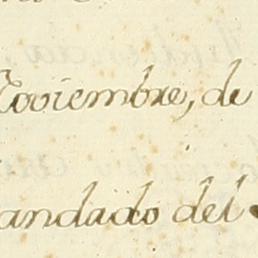 Noviembre, de
mandado del